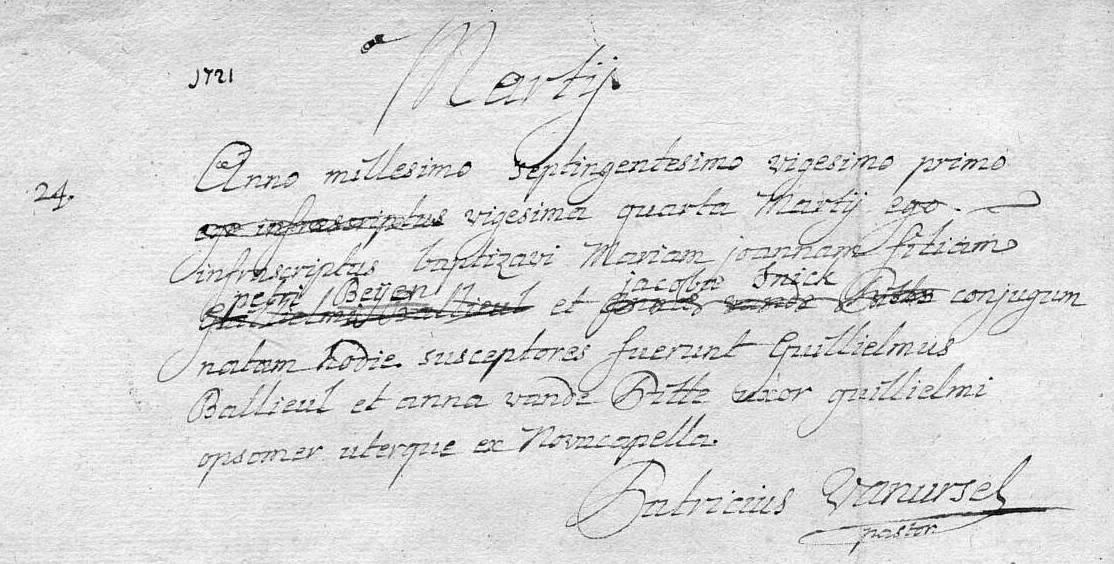 1721
Martij
24.
Anno millesimo septingentesimo vigesimo primo
ego infrascriptus vigesima quarta Martij ego
infrascriptus baptizavi Mariam joannam filiam
petri Beÿen jacobæ Snick
guillielmi Ballieul et conjugum
natam hodie. susceptores fuerunt Guillielmus
Ballieul et anna vande Pitte uxor guillielmi
opsomer uterque ex Novacapella.
Patricius Vanursel
pastor